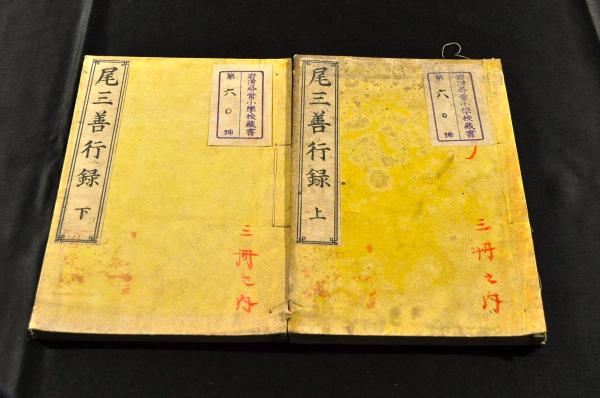 尾三善行録 上
岩滑尋常小學校藏書
第六〇號
三冊之内
尾三善行録 下
岩滑尋常小學校藏書
第六〇號
三冊之内